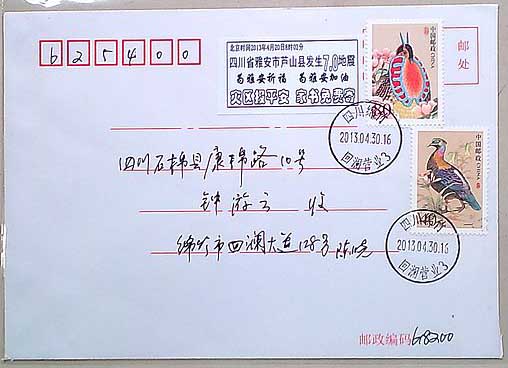 625400
北京时间2013年4月20日8时02分
四川省雅安市芦山县发生7.0地震
为雅安祈福 为雅安加油
灾区报平安 家书免费寄
中国邮政
80
邮
处
四川绵竹
2013.04.30.16
回澜营业3
中国邮政
四川绵竹
2013.04.30.16
回澜营业3
四川石棉县康棉路10号
钟游云 收
绵竹市回澜大道128号 陈晓
邮政编码 618200